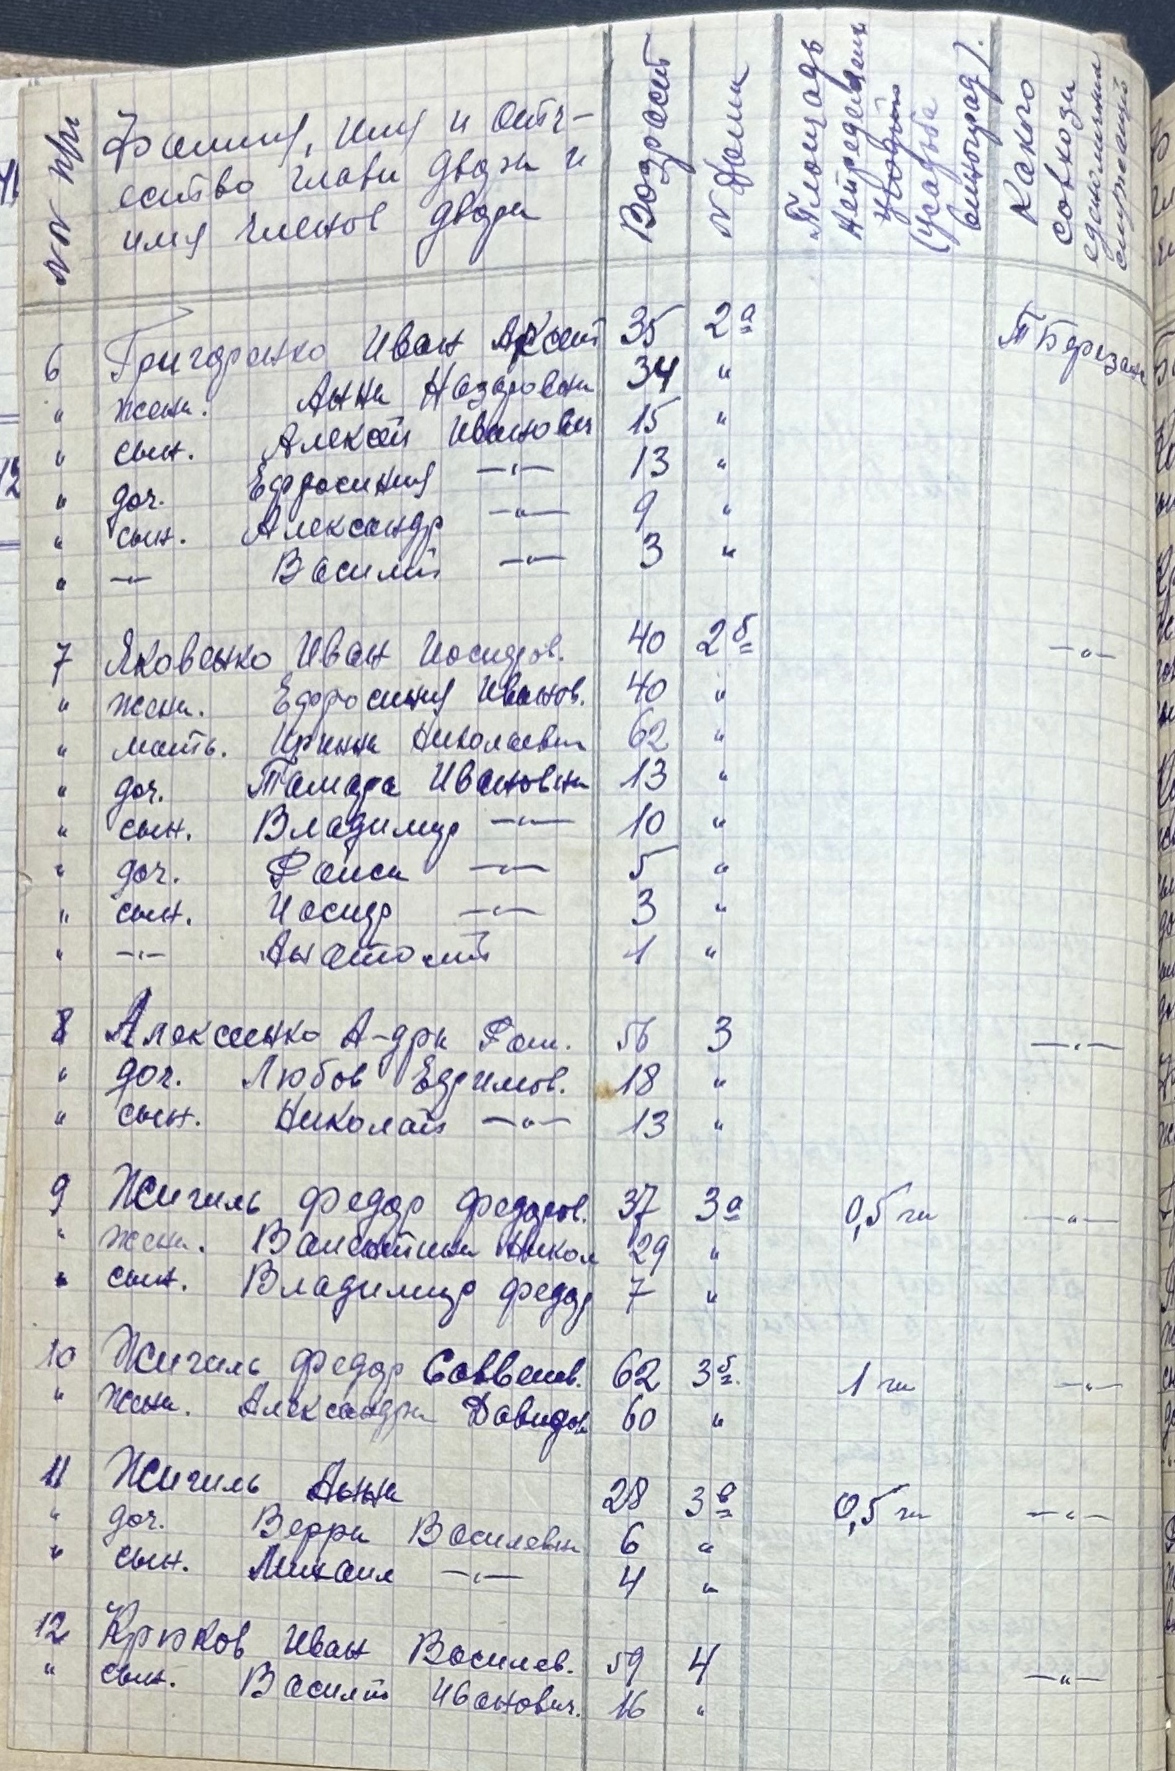 NN п/п
Фамилия, имя и отч-
ество глави двора и
имя членов двора
Возраст
N Дома
Площадь
(усадьба
виноград).
Какого
совхоза
6 Григоренко Иван Аксент 35 2а Т Березань
" жена. Анна Назаровна 34 "
" сын. Алексей Иванович 15 "
" доч. Ефросиния —"— 13 "
" сын. Александр —"— 9 "
" —"— Василий —"— 3 "
7 Яковенко Иван Иосифов. 40 2б —"—
" жена. Ефросиния Иванов. 40 "
" мать. Ирина Николаевна 62 "
" доч. Тамара Ивановна 13 "
" сын. Владимир —"— 10 "
" доч. Раиса —"— 5 "
" сын. Иосиф —"— 3 "
" —"— Анатолий 1 "
8 Алексеенко А-дра Ром. 56 3 —"—
" доч. Любов Ефимов. 18 "
" сын. Николай —"— 13 "
9 Жигиль Федор Федоров. 37 3а 0,5 га —"—
" жена. Валентина Никол 29 "
" сын. Владимир Федор 7 "
10 Жигиль Федор Савватов. 62 3б. 1 га —"—
" жена. Александра Давидов 60 "
11 Жигиль Анна 28 3в 0,5 га —"—
" доч. Верра Василевна 6 "
" сын. Михаил —"— 4 "
12 Крюков Иван Василев. 59 4 —"—
" сын. Василий Иванович. 16 "